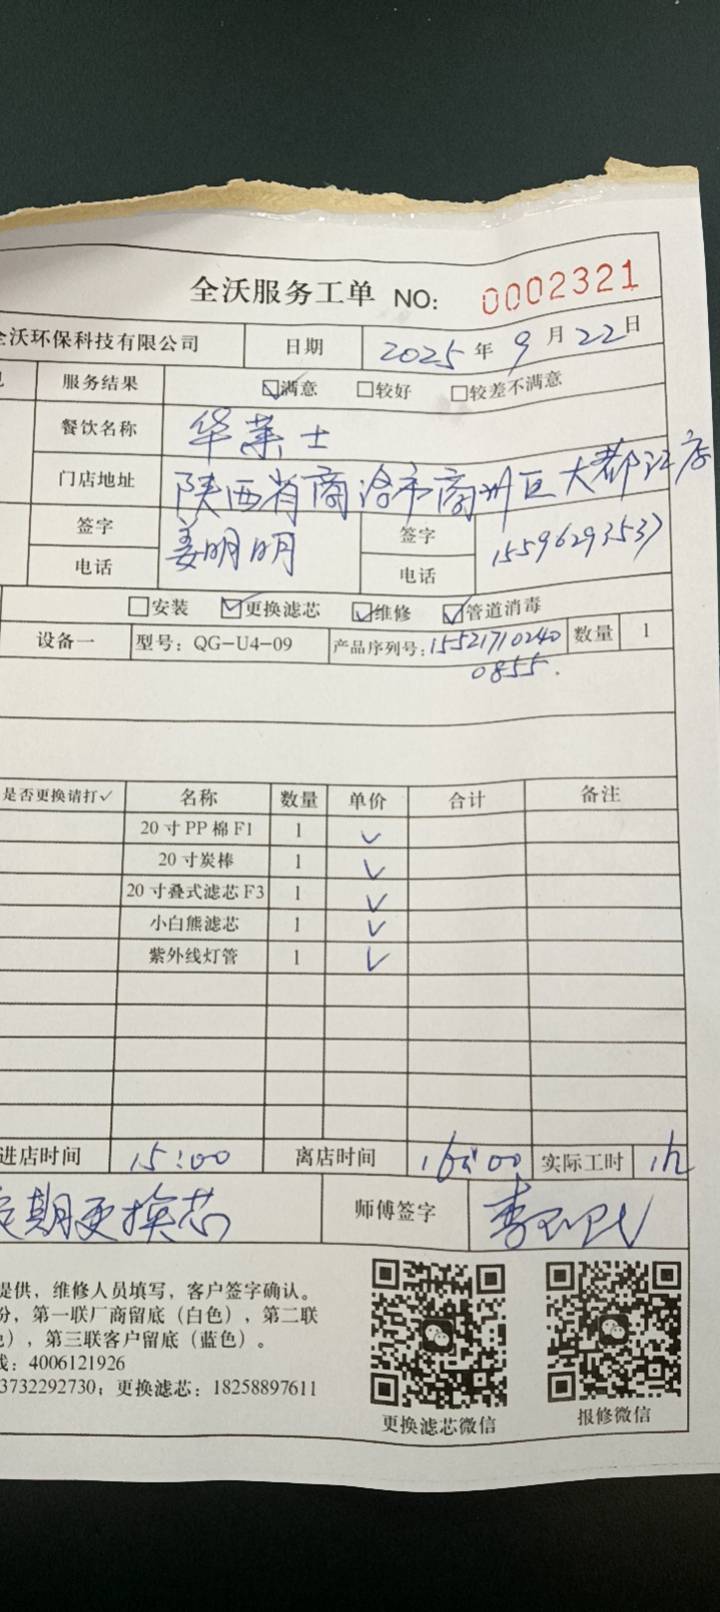 全沃服务工单 NO: 0002321
全沃环保科技有限公司 日期 2025年9月22日
服务结果 ☑满意 □较好 □较差不满意
餐饮名称 华莱士
门店地址 陕西省商洛市商州区大都江店
签字 姜明明 签字
电话 电话 15596293537
□安装 ☑更换滤芯 ☑维修 ☑管道消毒
设备一 型号：QG-U4-09 产品序列号：15521710240 数量 1
0855.
是否更换请打✓ 名称 数量 单价 合计 备注
20寸PP棉F1 1 ✓
20寸炭棒 1 ✓
20寸叠式滤芯F3 1 ✓
小白熊滤芯 1 ✓
紫外线灯管 1 ✓
进店时间 15:00 离店时间 16:00 实际工时 1h
定期更换芯 师傅签字
提供，维修人员填写，客户签字确认。
份，第一联厂商留底（白色），第二联
），第三联客户留底（蓝色）。
：4006121926
3732292730；更换滤芯：18258897611
更换滤芯微信 报修微信